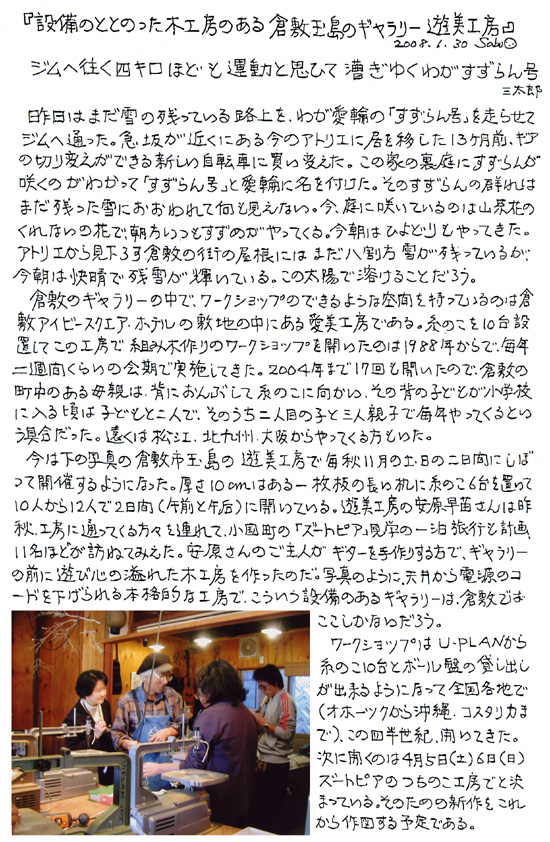 『設備のととのった木工房のある倉敷玉島のギャラリー遊美工房』
2008.1.30 Sabu
ジムへ往く四キロほども運動と思ひて漕ぎゆくわがすずらん号
三太郎
昨日はまだ雪の残っている路上を、わが愛輪の「すずらん号」を走らせて
ジムへ通った。急坂が近くにある今のアトリエに居を移した13ヶ月前、ギア
の切り変えができる新しい自転車に買い変えた。この家の裏庭にすずらんが
咲くのがわかって「すずらん号」と愛輪に名を付けた。そのすずらんの群れは
まだ残った雪におおわれて何も見えない。今、庭に咲いているのは山茶花の
くれないの花で、朝方いつもすずめがやってくる。今朝はひよどりもやってきた。
アトリエから見下ろす倉敷の街の屋根にはまだ八割方雪が残っているが、
今朝は快晴で残雪が輝いている。この太陽で溶けることだろう。
倉敷のギャラリーの中で、ワークショップのできるような空間を持っているのは倉
敷アイビースクエア・ホテルの敷地の中にある愛美工房である。糸のこを10台設
置してこの工房で組み木作りのワークショップを開いたのは1988年からで、毎年
二週間くらいの会期で実施してきた。2004年まで17回も開いたので、倉敷の
町中のある母親は、背におんぶして糸のこに向かい、その背の子どもが小学校
に入る頃は子どもと二人で、そのうち二人目の子と三人親子で毎年やってくるとい
う具合だった。遠くは松江、北九州、大阪からやってくる方もいた。
今は下の写真の倉敷市玉島の遊美工房で毎秋11月の土・日の二日間にしぼ
って開催するようになった。厚さ10cmはある一枚板の長い机に糸のこ6台を置いて
10人から12人で2日間(午前と午后)に開いている。遊美工房の安原早苗さんは昨
秋、工房に通ってくる方々を連れて、小国町の「ズートピア」見学の一泊旅行を計画、
11名ほどが訪ねてみえた。安原さんのご主人がギターを手作りする方で、ギャラリー
の前に遊び心の溢れた木工房を作ったのだ。写真のように、天井から電源のコ
ードを下げられる本格的な工房で、こういう設備のあるギャラリーは、倉敷では
ここしかないだろう。
ワークショップはU-PLANから
糸のこ10台とボール盤の貸し出し
が出来るようになって全国各地で
(オホーツクから沖縄、コスタリカま
で)、この四半世紀、開いてきた。
次に開くのは4月5日(土)6日(日)
ズートピアのつちのこ工房でと決
まっている。そのための新作をこれ
から作図する予定である。